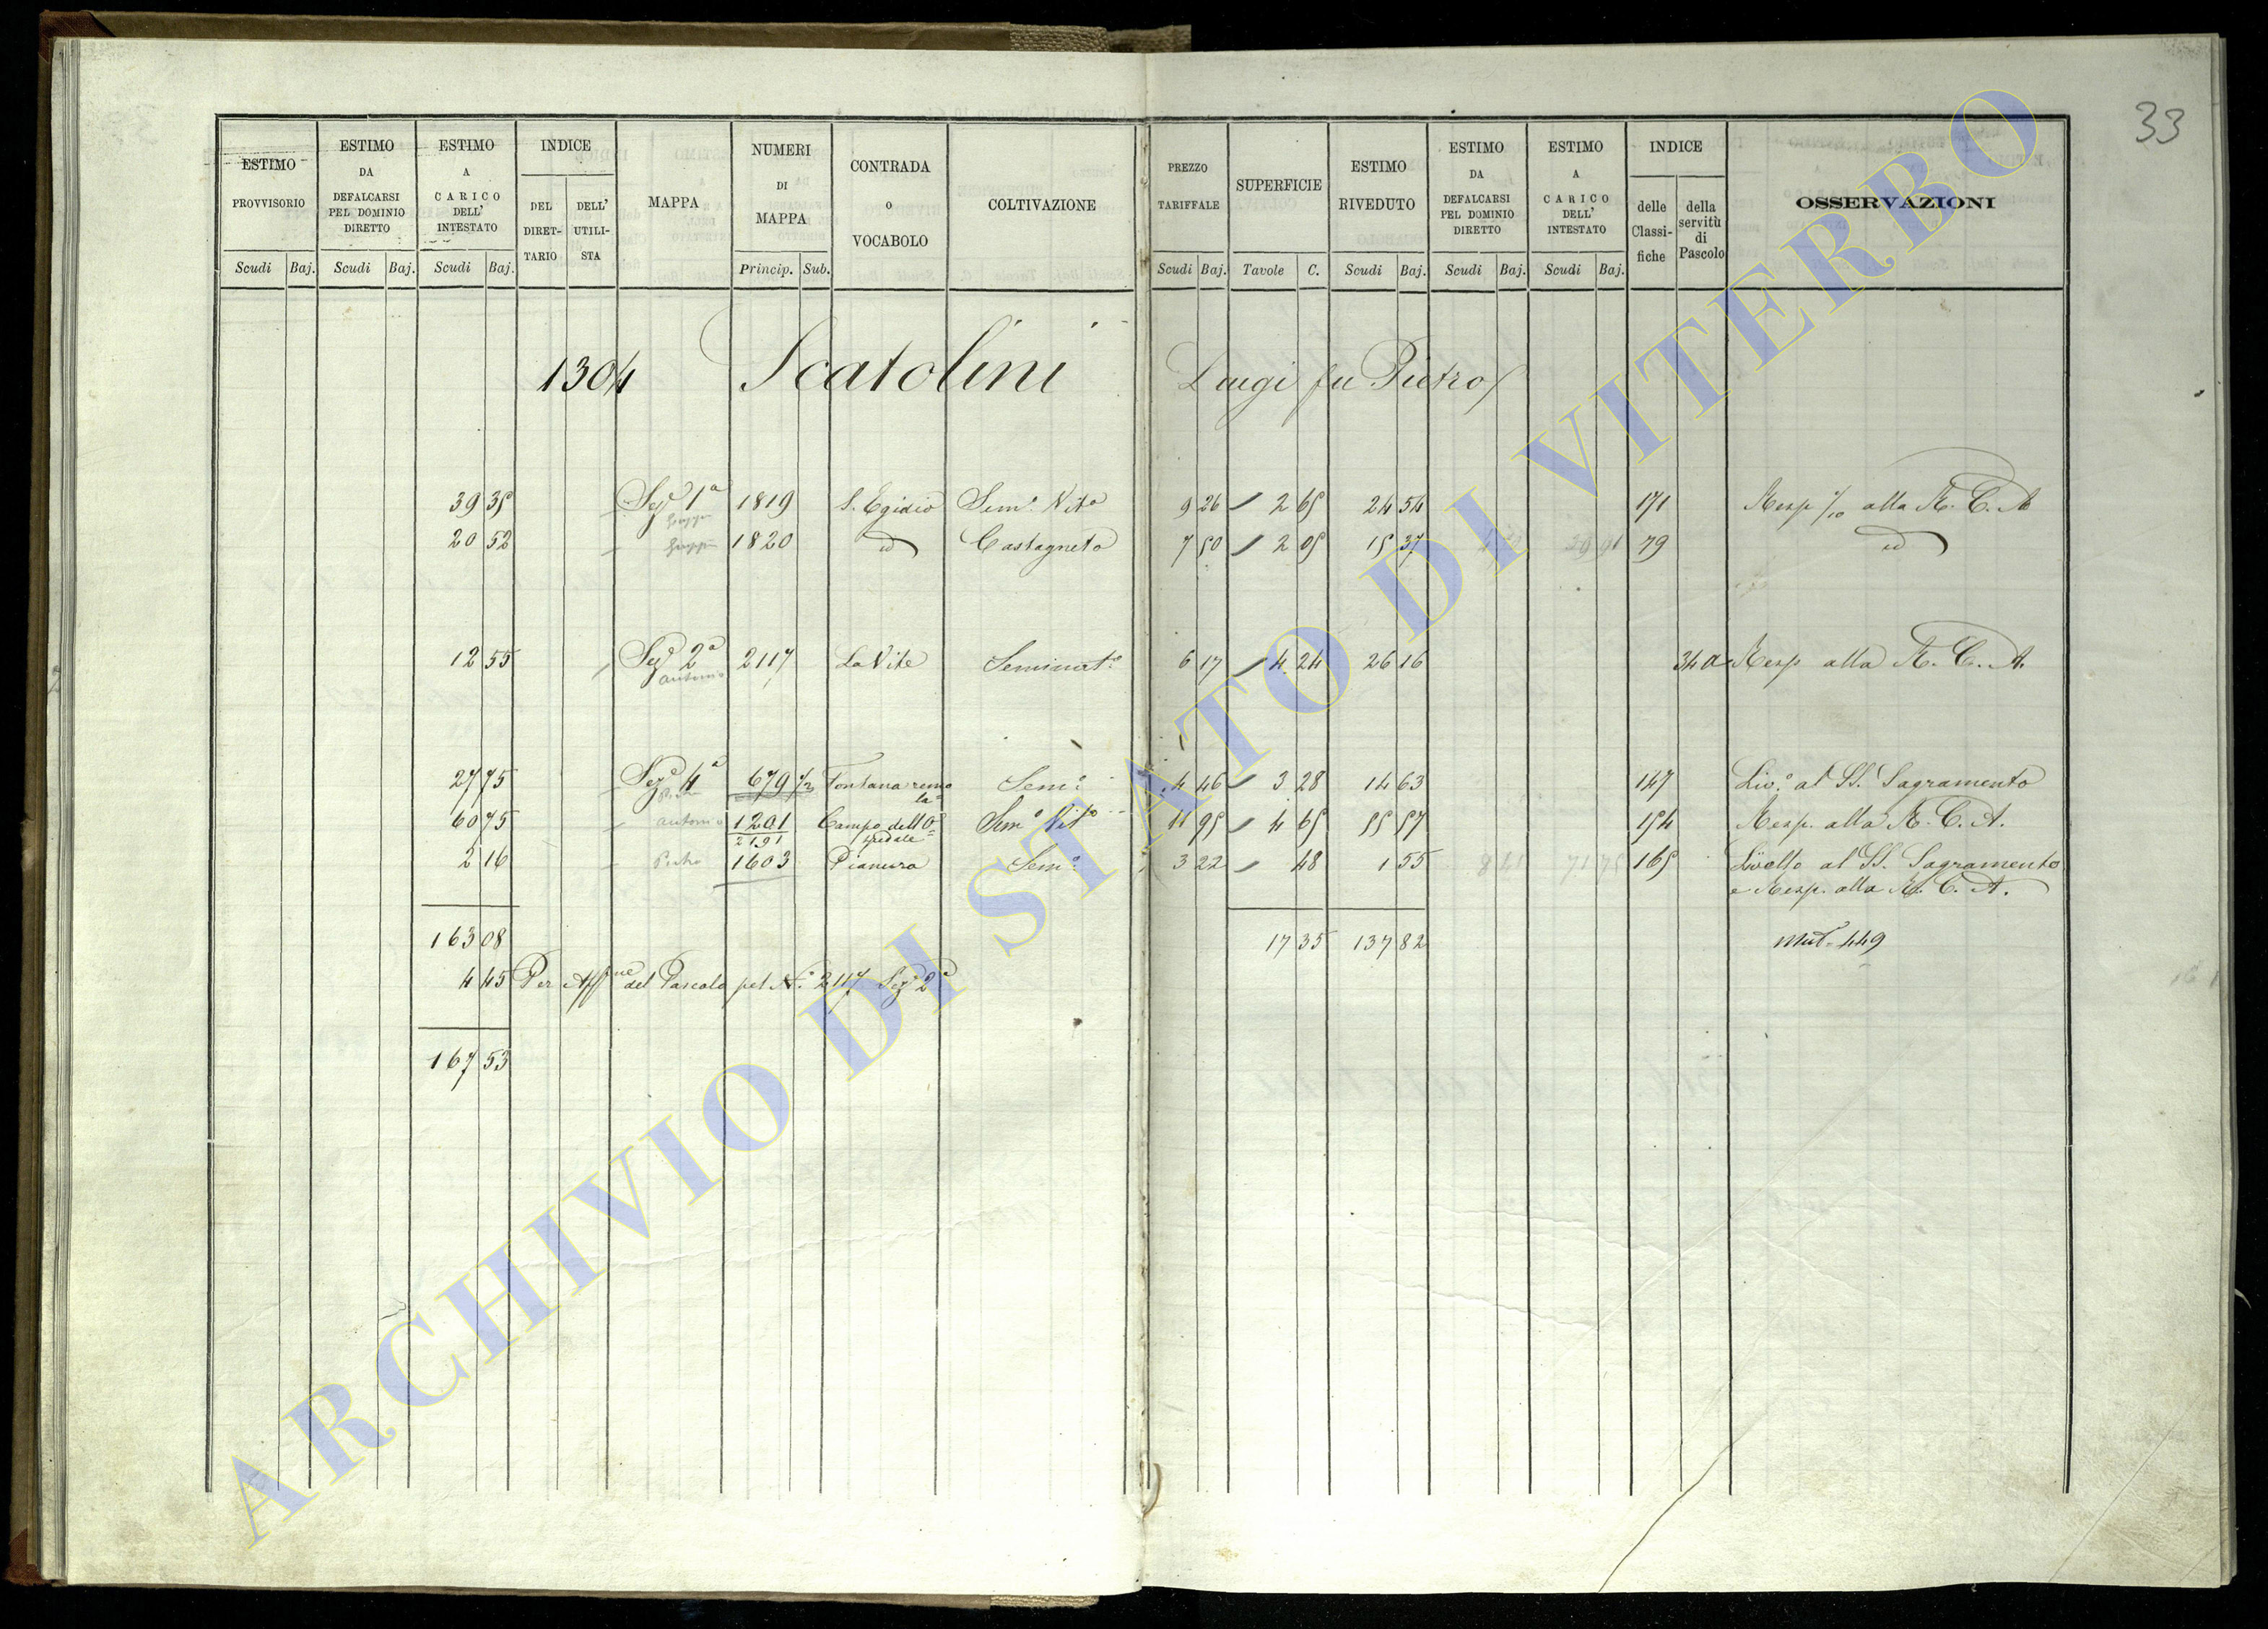 33
ESTIMO PROVVISORIO | ESTIMO DA DEFALCARSI PEL DOMINIO DIRETTO | ESTIMO A CARICO DELL' INTESTATO | INDICE | MAPPA | NUMERI DI MAPPA | CONTRADA O VOCABOLO | COLTIVAZIONE | PREZZO TARIFFALE | SUPERFICIE | ESTIMO RIVEDUTO | ESTIMO DA DEFALCARSI PEL DOMINIO DIRETTO | ESTIMO A CARICO DELL' INTESTATO | INDICE | OSSERVAZIONI
DEL DIRETTARIO | DELL' UTILISTA | delle Classifiche | della servitù di Pascolo
Scudi | Baj. | Scudi | Baj. | Scudi | Baj. | Princip. | Sub. | Scudi | Baj. | Tavole | C. | Scudi | Baj. | Scudi | Baj. | Scudi | Baj.
1304 Scatolini Luigi fu Pietro
39 35 Sez.e 1a 1819 S. Egidio Sem.o Vit.o 9 26 2 65 24 54 171 Resp alla R. C. A
20 52 1820 id Castagneto 7 50 2 05 15 37 79 id
12 55 Sez.e 2a 2117 La Vite Seminat.o 6 17 4 24 26 16 34 a Resp alla R. C. A.
antonio
27 75 Sez.e 4a 679 1/2 Fontana remola Sem.o 4 46 3 28 14 63 147 Liv.o al SS. Sagramento
60 75 antonio 1201 Campo dell'Ospedale Sem.o Vit.o 11 95 4 65 55 57 154 Resp. alla R. C. A.
2191
2 16 Pietro 1603 Pianura Sem.o 3 22 48 1 55 165 Livello al SS. Sagramento
e Resp. alla R. C. A.
163 08 17 35 137 82 Mut. 449
4 45 Per Aff.ne del Pascolo pel N.o 2117 Sez 2a
167 53
ARCHIVIO DI STATO DI VITERBO